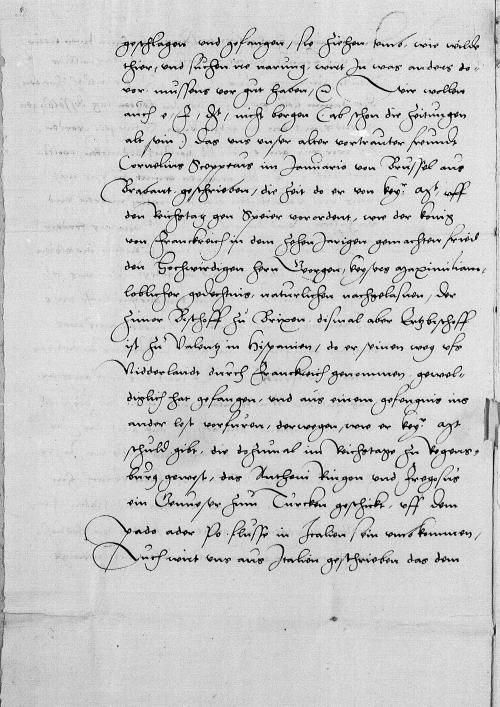 geschlagen und gefangen, sie ziehen umb, wie wilde
thier, und suchen ire narung, wirt in was anders do-
vor, mussens vor gut haben, Wir wollen
auch e, f, g, nich bergen (ab schon die Zeitungen
alt sein) das uns unser alter vortrauter freundt
Cornelius Scepperus im Januario von Brussel aus
Brabant, geschrieben, die Zeit do er von key. Mgt uff
den Richstag gen Speier vorordent, wie der konig
von Franckreich in dem Zehen Jarigen gemachten fried
den Hochwirdigen hern Georgen, keyses Maximilian
loblicher gedechtnis, naturlichen nachgelasnen, der
zuvor Bischoff zu Brixen, dismal aber Ertzbischoff
ist zu Valentz in Hispanien, do er seinen weg ufs
Nidderlandt durch Franckreich genommen, gewel-
diglich hat gefangen, und aus einem gefengnis ins
ander lest verfuren, derwegen, wie er key. Mgt
schuld gibt, die dozumal im Richstage zu Regens-
burg gewest, das Anthoni Rincon und Fregosus
ein Genueser zum Turcken geschickt, uff dem
pado ader Po flusse in Italien, sein umbkommen,
Auch wirt uns aus Italien geschrieben das dem